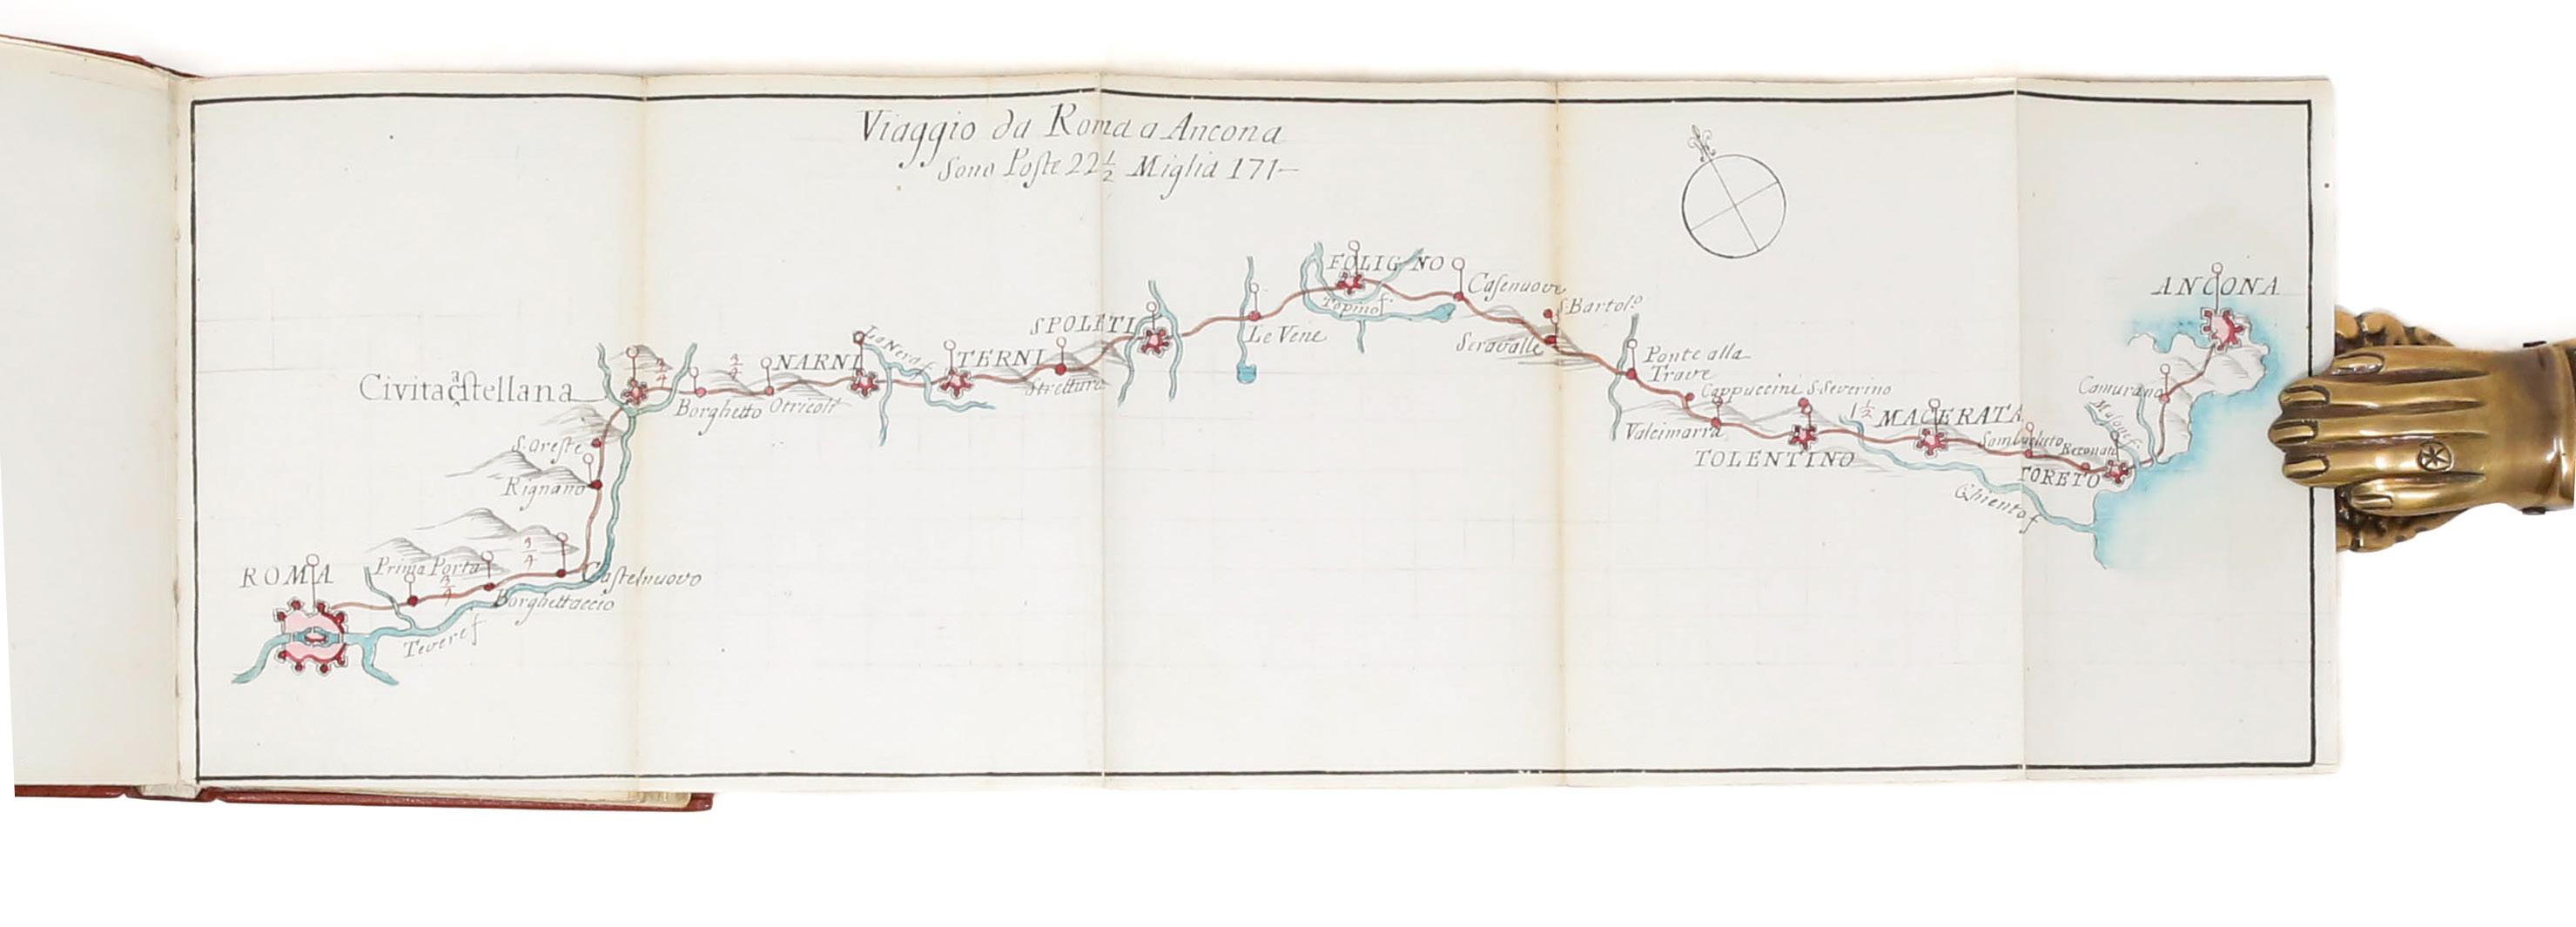 Viaggio da Roma a Ancona
Sono Poſte 22 1/2 Miglia 171–
ROMA
Prima Porta
3/4
Borghettaccio
3/4
Caſtelnuovo
Tevere f
Rignano
S. Oreſte
Civitacaſtellana
3/4
Borghetto
3/4
Otricoli
NARNI
La Nera f
TERNI
Strettura
SPOLETI
Le Vene
FOLIGNO
Topino f.
Caſenuove
S. Bartolo
Seravalle
Ponte alla
Trave
Cappuccini
Valcimarra
S. Severino
TOLENTINO
1 1/2
MACERATA
Chiento f
Recanati
LORETO
Camurano
ANCONA